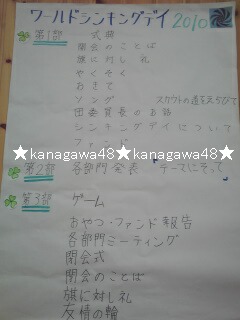 ワールドシンキングデイ 2010
第1部 式典
開会のことば
旗に対し礼
やくそく
おきて
ソング スカウトの道をえらびて
団委員長のお話
シンキングデイについて
ファンド
★kanagawa48★kanagawa48★
第2部 各部門発表 テーマにそって
第3部 ゲーム
おやつ・ファンド報告
各部門ミーティング
閉会式
閉会のことば
旗に対し礼
友情の輪